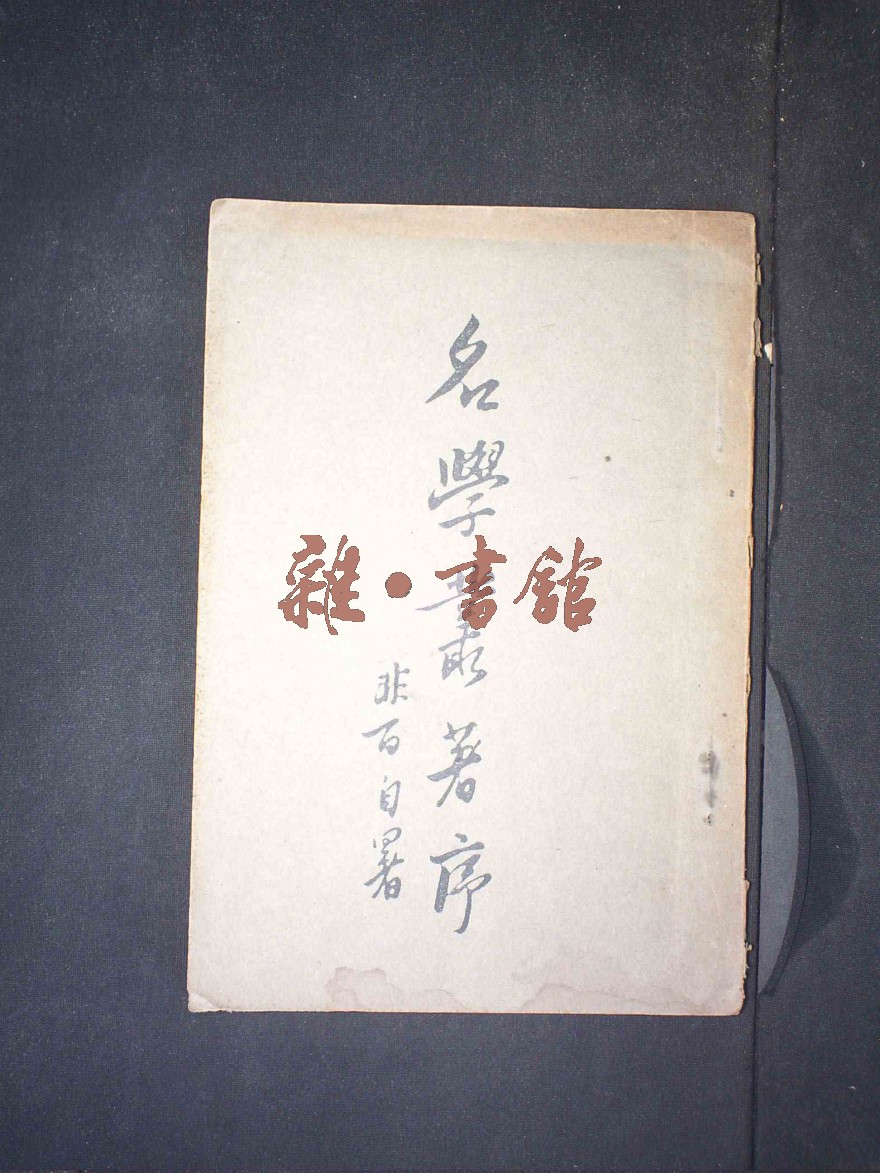 名學叢著序
非百自署
雜·書館